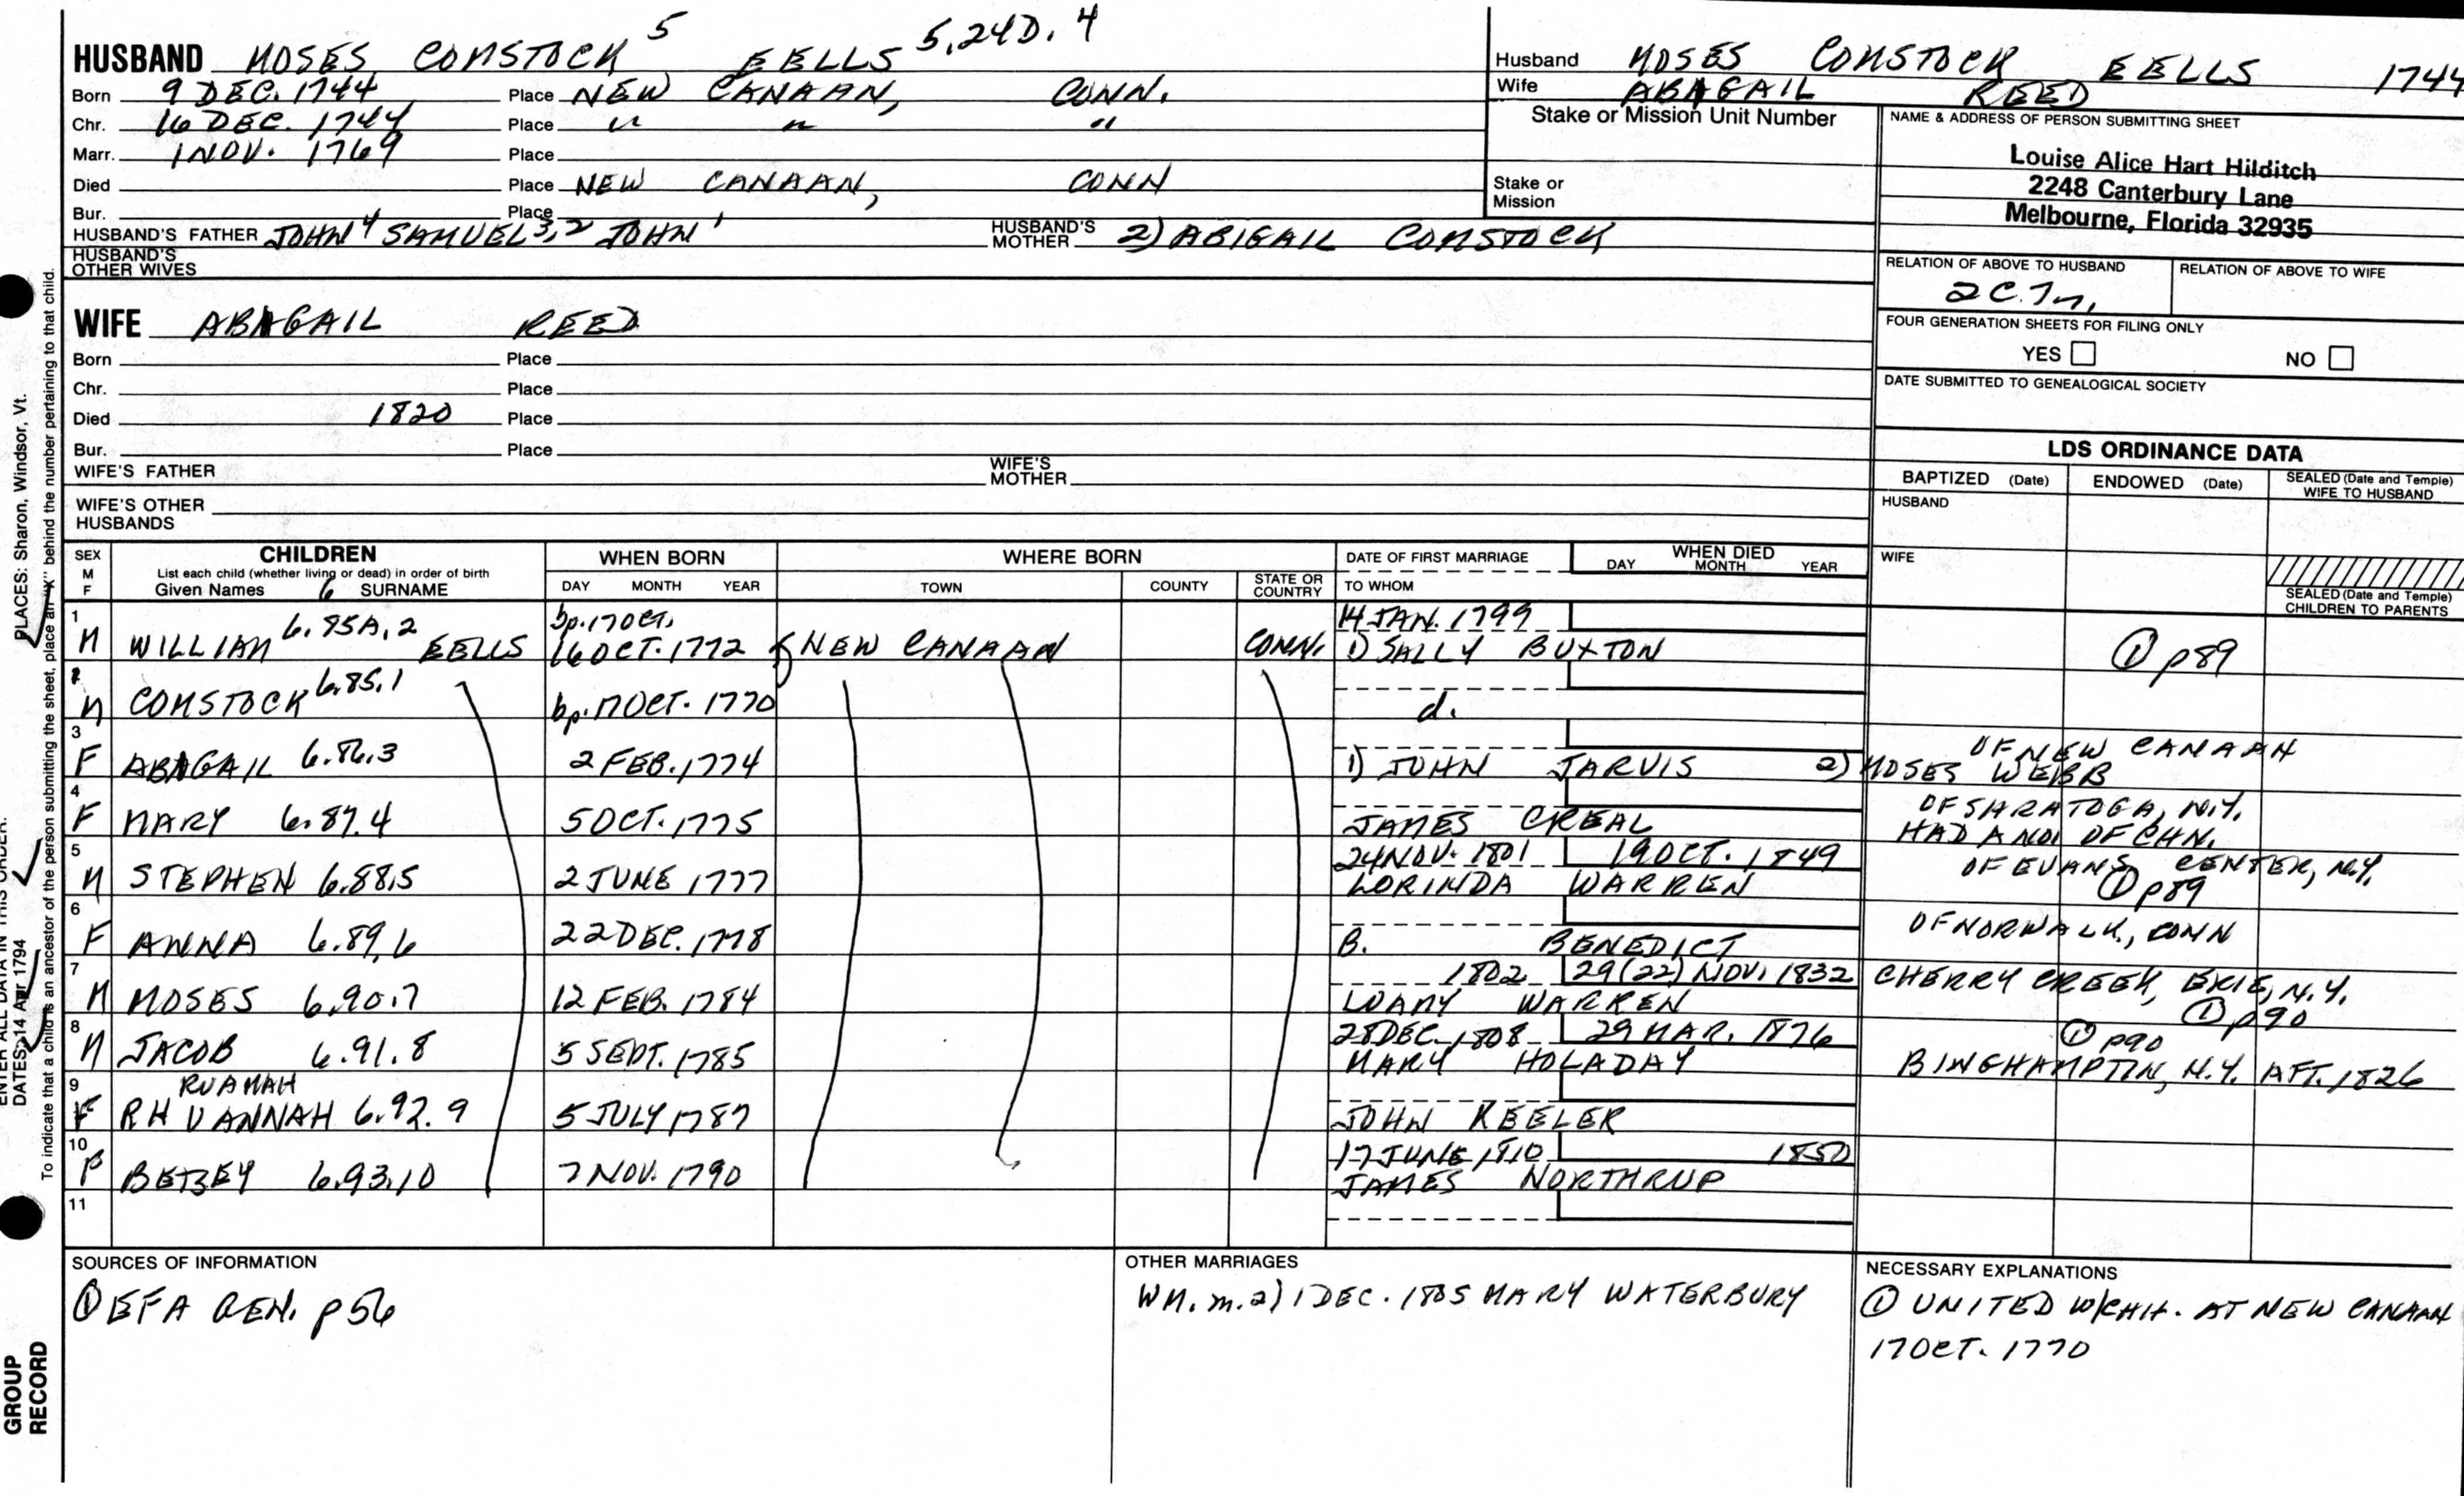 HUSBAND MOSES COMSTOCK 5 EELLS 5.24D.4
Born 9 DEC. 1744 Place NEW CANAAN, CONN.
Chr. 16 DEC. 1744 Place " " "
Marr. 1 NOV. 1769 Place
Died Place NEW CANAAN, CONN
Bur. Place
HUSBAND'S FATHER JOHN 4 SAMUEL 3,2 JOHN 1 HUSBAND'S MOTHER 2) ABIGAIL COMSTOCK
HUSBAND'S OTHER WIVES
Husband MOSES COMSTOCK EELLS 1744
Wife ABAGAIL REED
Stake or Mission Unit Number
Stake or Mission
NAME & ADDRESS OF PERSON SUBMITTING SHEET
Louise Alice Hart Hilditch
2248 Canterbury Lane
Melbourne, Florida 32935
RELATION OF ABOVE TO HUSBAND RELATION OF ABOVE TO WIFE
2C.7r.
FOUR GENERATION SHEETS FOR FILING ONLY
YES NO
DATE SUBMITTED TO GENEALOGICAL SOCIETY
WIFE ABAGAIL REED
Born Place
Chr. Place
Died 1820 Place
Bur. Place
WIFE'S FATHER WIFE'S MOTHER
WIFE'S OTHER HUSBANDS
LDS ORDINANCE DATA
BAPTIZED (Date) ENDOWED (Date) SEALED (Date and Temple) WIFE TO HUSBAND
HUSBAND
WIFE
SEALED (Date and Temple) CHILDREN TO PARENTS
SEX M F CHILDREN WHEN BORN WHERE BORN DATE OF FIRST MARRIAGE WHEN DIED
List each child (whether living or dead) in order of birth
Given Names 6 SURNAME DAY MONTH YEAR TOWN COUNTY STATE OR COUNTRY TO WHOM DAY MONTH YEAR
1 bp. 17 OCT. 14 JAN. 1799
M WILLIAM 6.85A.2 EELLS 16 OCT. 1772 NEW CANAAN CONN. 1) SALLY BUXTON ① p89
2
M COMSTOCK 6.85.1 bp. 17 OCT. 1770 d.
3 OF NEW CANAAN
F ABAGAIL 6.86.3 2 FEB. 1774 1) JOHN JARVIS 2) MOSES WEBB
4 OF SARATOGA, N.Y.
F MARY 6.87.4 5 OCT. 1775 JAMES CREAL HAD A NO. OF CHN.
5 24 NOV. 1801 19 OCT. 1849 OF EVANS CENTER, N.Y.
M STEPHEN 6.88.5 2 JUNE 1777 LORINDA WARREN ① p89
6 OF NORWALK, CONN
F ANNA 6.89.6 22 DEC. 1778 B. BENEDICT
7 1802 29 (22) NOV. 1832 CHERRY CREEK, ERIE, N.Y.
M MOSES 6.90.7 12 FEB. 1784 LOANY WARREN ① p90
8 28 DEC. 1808 29 MAR. 1876 ① p90
M JACOB 6.91.8 5 SEPT. 1785 MARY HOLADAY BINGHAMPTIN, N.Y. AFT. 1826
9 RUAMAH
F RHUANNAH 6.92.9 5 JULY 1787 JOHN KEELER
10 17 JUNE 1810 1850
F BETSEY 6.93.10 7 NOV. 1790 JAMES NORTHRUP
11
SOURCES OF INFORMATION
① EFA GEN. p56
OTHER MARRIAGES
WM. m. 2) 1 DEC. 1805 MARY WATERBURY
NECESSARY EXPLANATIONS
① UNITED W/CHH. AT NEW CANAAN
17 OCT. 1770
PLACES: Sharon, Windsor, Vt.
To indicate that a child is an ancestor of the person submitting the sheet, place an "X" behind the number pertaining to that child.
ENTER ALL DATA IN THIS ORDER:
DATES: 14 Apr 1794
GROUP
RECORD